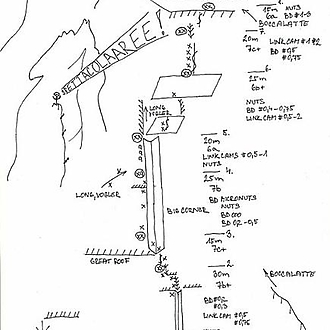 1.
15m
6a BD #1-3
BOCCALATTE
SPETTACOLAAREE!
7. LINK CAM #1 #2
20m BD #0,5
7c+ #0,75
6.
25m
6b+
NUTS
BD #0,4-0,75
LINK CAM #0,5-2
LONG
5.
20m
6a
LINK CAMS #0,5-1
NUTS
4.
25m
7b
BD MICRONUTS
NUTS
BD 000
BD 0,2-0,5
BIG CORNER
3.
15m
7c+
GREAT ROOF
2.
30m
7b+
BOCCALATTE
BD #0,2
#0,3
LINK CAM #0,5
#0,75